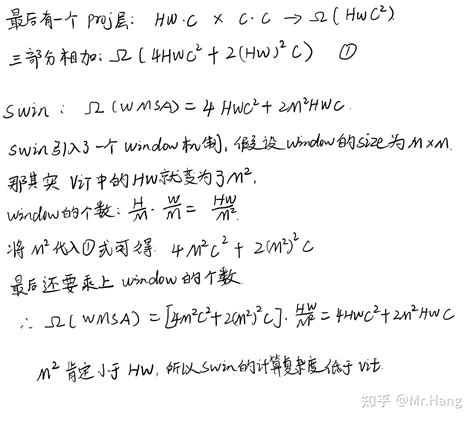 最后有一个 proj层: HW·C × C·C → Ω(HWC²)
三部分相加: Ω(4HWC² + 2(HW)²C) ①
swin: Ω(WMSA) = 4HWC² + 2M²HWC.
swin引入了一个window机制, 假设window的size为M×M.
那其实 ViT中的HW就变为了M².
window的个数: H/M · W/M = HW/M².
将 M²代入①式可得: 4M²C² + 2(M²)²C
最后还要乘上 window的个数
∴ Ω(WMSA) = [4M²C² + 2(M²)²C] · HW/M² = 4HWC² + 2M²HWC
M²肯定小于HW, 所以swin的计算复杂度低于vit.
知乎 @Mr.Hang